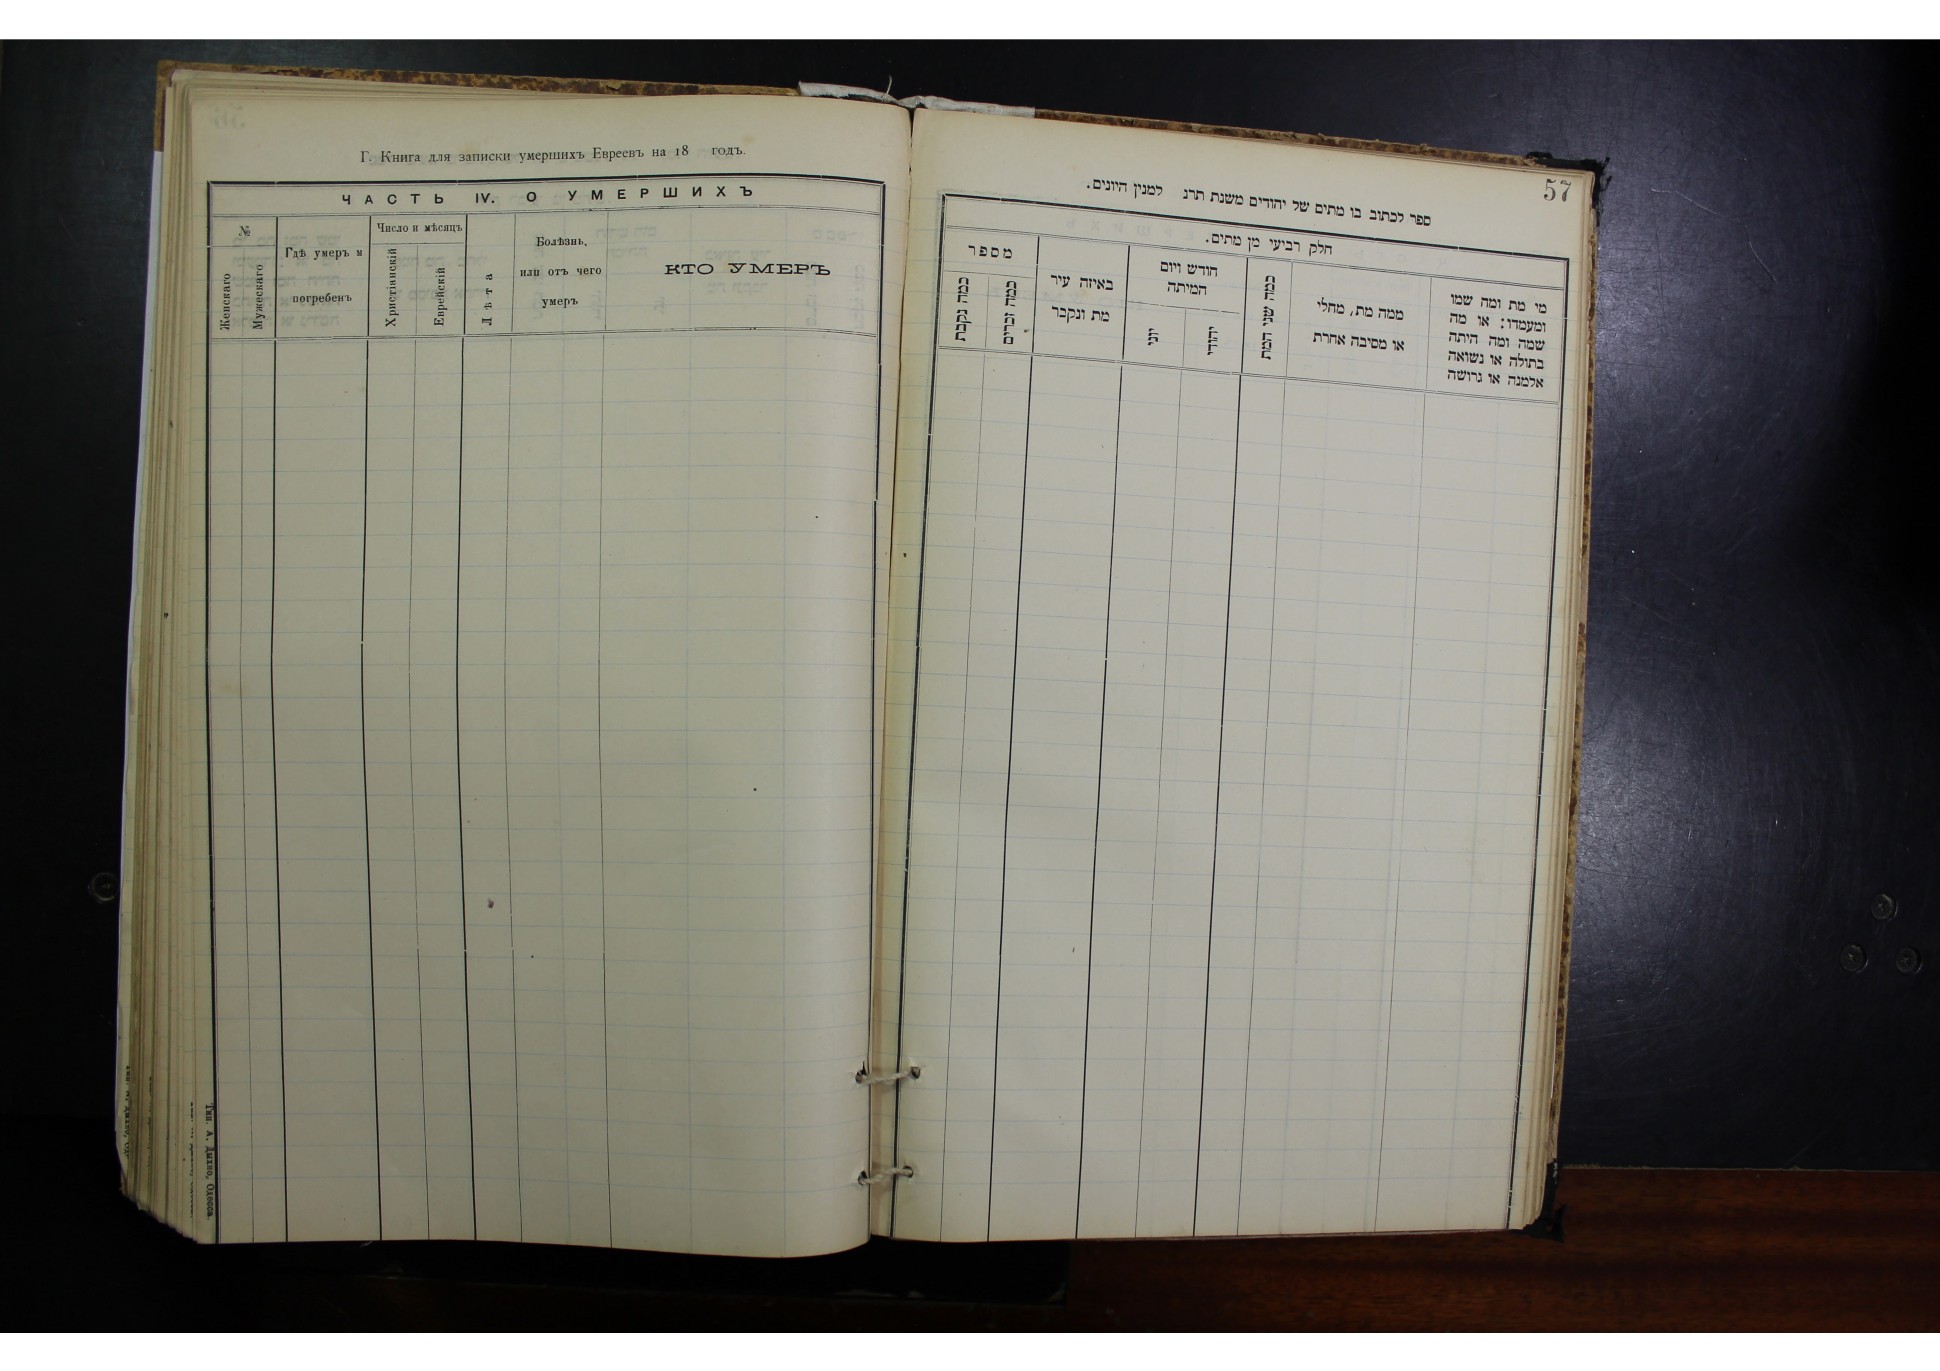 Г. Книга для записки умершихъ Евреевъ на 18 годъ.
ЧАСТЬ IV. О УМЕРШИХЪ
№
Женскаго
Мужескаго
Гдѣ умеръ и
погребенъ
Число и мѣсяцъ
Христіанскій
Еврейскій
Лѣта
Болѣзнь,
или отъ чего
умеръ
КТО УМЕРЪ
Тип. А. Дыхно, Одесса.
57
ספר לכתוב בו מתים של יהודים משנת תרנ למנין היונים.
חלק רביעי מן מתים.
מי מת ומה שמו
ומעמדו: או מה
שמה ומה היתה
בתולה או נשואה
אלמנה או גרושה
ממה מת, מחלי
או מסיבה אחרת
כמה שני המת
חודש ויום
המיתה
יהודי
יוני
באיזה עיר
מת ונקבר
מספר
כמה זכרים
כמה נקבת